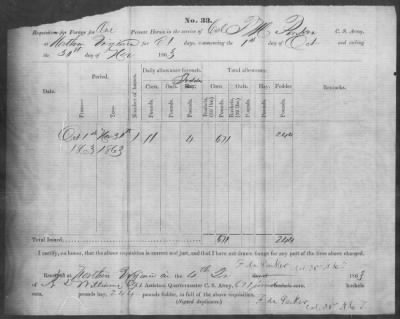 No. 33.
Requisition for Forage for One Private Horse in the service of Col. F. M. Parker C. S. Army,
at Northern Virginia for 61 days, commencing the 1st day of Oct. and ending
the 30th day of Nov 1863
Date. Period. Number of horses. Daily allowance for each. Total allowance. Remarks.
From— To— Corn. Oats. Fodder Hay. Corn. Oats. Hay. Fodder
Pounds. Pounds. Pounds. Pounds. Pounds.
Oct 1st Nov 30th 1 11 4 671 244
1863 1863
Total issued 671 244
I certify, on honor, that the above requisition is correct and just, and that I have not drawn forage for any part of the time above charged.
F. M. Parker
Received at Northern Virginia on the 4th 1863
of Assistant Quartermaster C. S. Army, 671 pounds corn,
pounds hay, 244 pounds fodder, in full of the above requisition.
(Signed duplicates.)
F. M. Parker